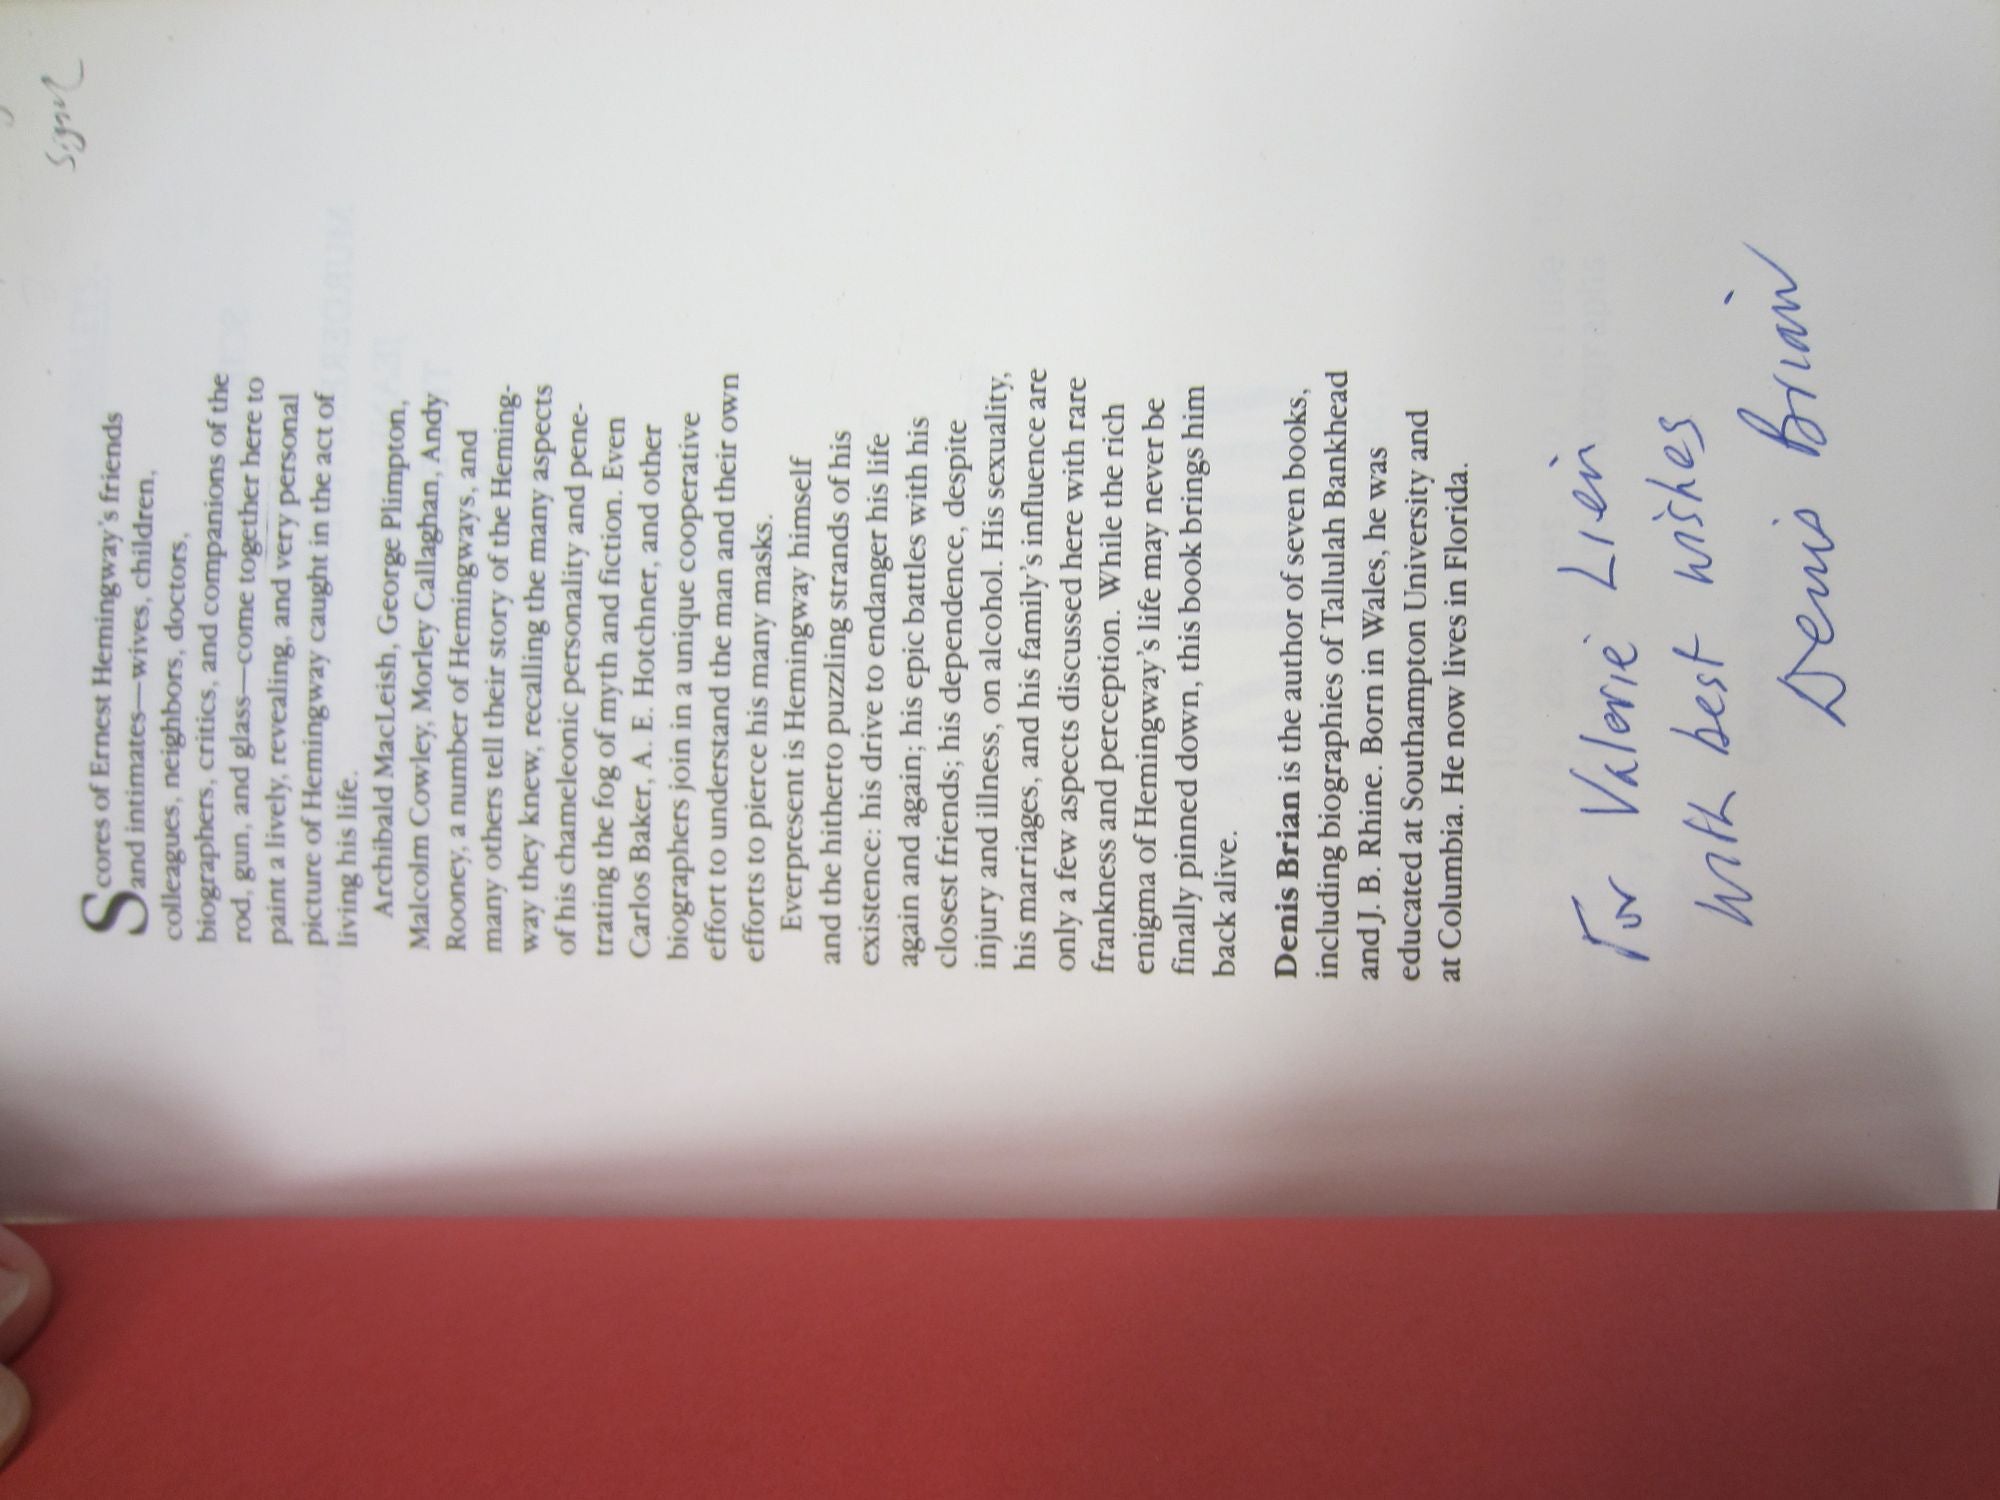 Signed
Scores of Ernest Hemingway's friends
and intimates—wives, children,
colleagues, neighbors, doctors,
biographers, critics, and companions of the
rod, gun, and glass—come together here to
paint a lively, revealing, and very personal
picture of Hemingway caught in the act of
living his life.
Archibald MacLeish, George Plimpton,
Malcolm Cowley, Morley Callaghan, Andy
Rooney, a number of Hemingways, and
many others tell their story of the Heming-
way they knew, recalling the many aspects
of his chameleonic personality and pene-
trating the fog of myth and fiction. Even
Carlos Baker, A. E. Hotchner, and other
biographers join in a unique cooperative
effort to understand the man and their own
efforts to pierce his many masks.
Everpresent is Hemingway himself
and the hitherto puzzling strands of his
existence: his drive to endanger his life
again and again; his epic battles with his
closest friends; his dependence, despite
injury and illness, on alcohol. His sexuality,
his marriages, and his family's influence are
only a few aspects discussed here with rare
frankness and perception. While the rich
enigma of Hemingway's life may never be
finally pinned down, this book brings him
back alive.
Denis Brian is the author of seven books,
including biographies of Tallulah Bankhead
and J. B. Rhine. Born in Wales, he was
educated at Southampton University and
at Columbia. He now lives in Florida.
For Valerie Lien
with best wishes
Denis Brian